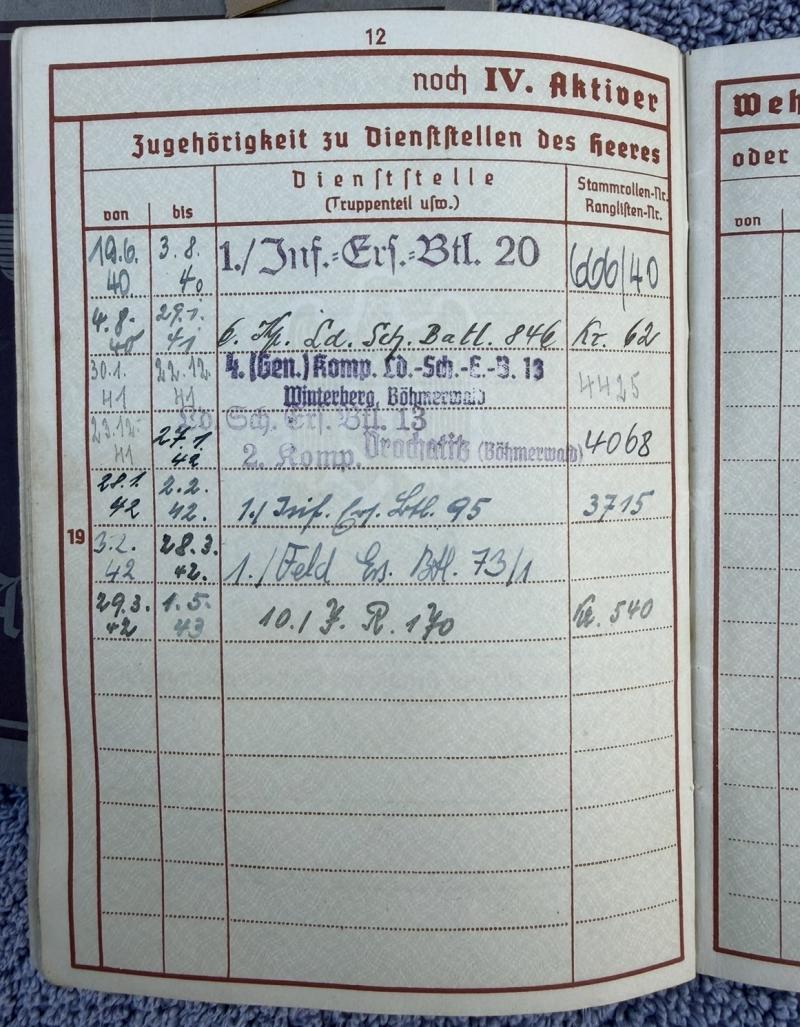 12
noch IV. Aktiver
Zugehörigkeit zu Dienststellen des Heeres
von
bis
Dienststelle
(Truppenteil usw.)
Stammrollen-Nr.
Ranglisten-Nr.
19.6. 40. 3.8. 40 1./Inf.-Ers.-Btl. 20 666/40
4.8. 40 29.1. 41 6. Kp. Ld. Sch. Batl. 846 Kr. 62
30.1. 41 22.12. 41 4. (Gen.) Komp. Ld.-Sch.-E.-B. 13
Winterberg, Böhmerwald 4425
23.12. 41 27.1. 42 Ld. Sch. Ers. Btl. 13
2. Komp. Prachatitz (Böhmerwald) 4068
28.1. 42 2.2. 42. 1./Inf. Ers. Btl. 95 3715
19
3.2. 42 28.3. 42. 1./Feld Ers. Btl. 73/1
29.3. 42 1.5. 43 10./J. R. 170 Kr. 540
Weh
oder
von